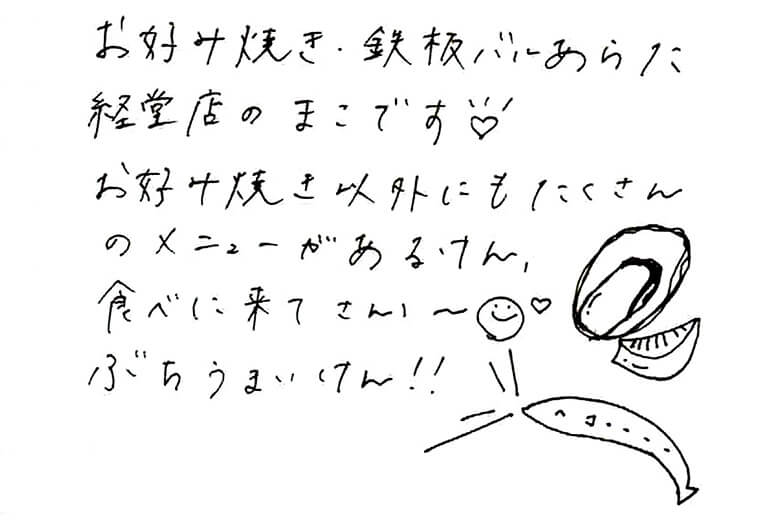 お好み焼き・鉄板バルあらた
経堂店のまこです♡
お好み焼き以外にもたくさん
のメニューがあるけん、
食べに来てさんい〜
ぶちうまいけん!!